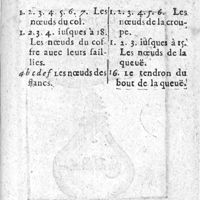 1. 2. 3. 4. 5. 6. 7. Les
nœuds du col.
1. 2. 3. 4. iusques à 18.
Les nœuds du cof-
fre auec leurs sail-
lies.
a b c d e f Les nœuds des
flancs.
1. 2. 3. 4. 5. 6. Les
nœuds de la crou-
pe.
1. 2. 3. iusques à 15.
Les nœuds de la
queuë.
16. Le tendron du
bout de la queuë.